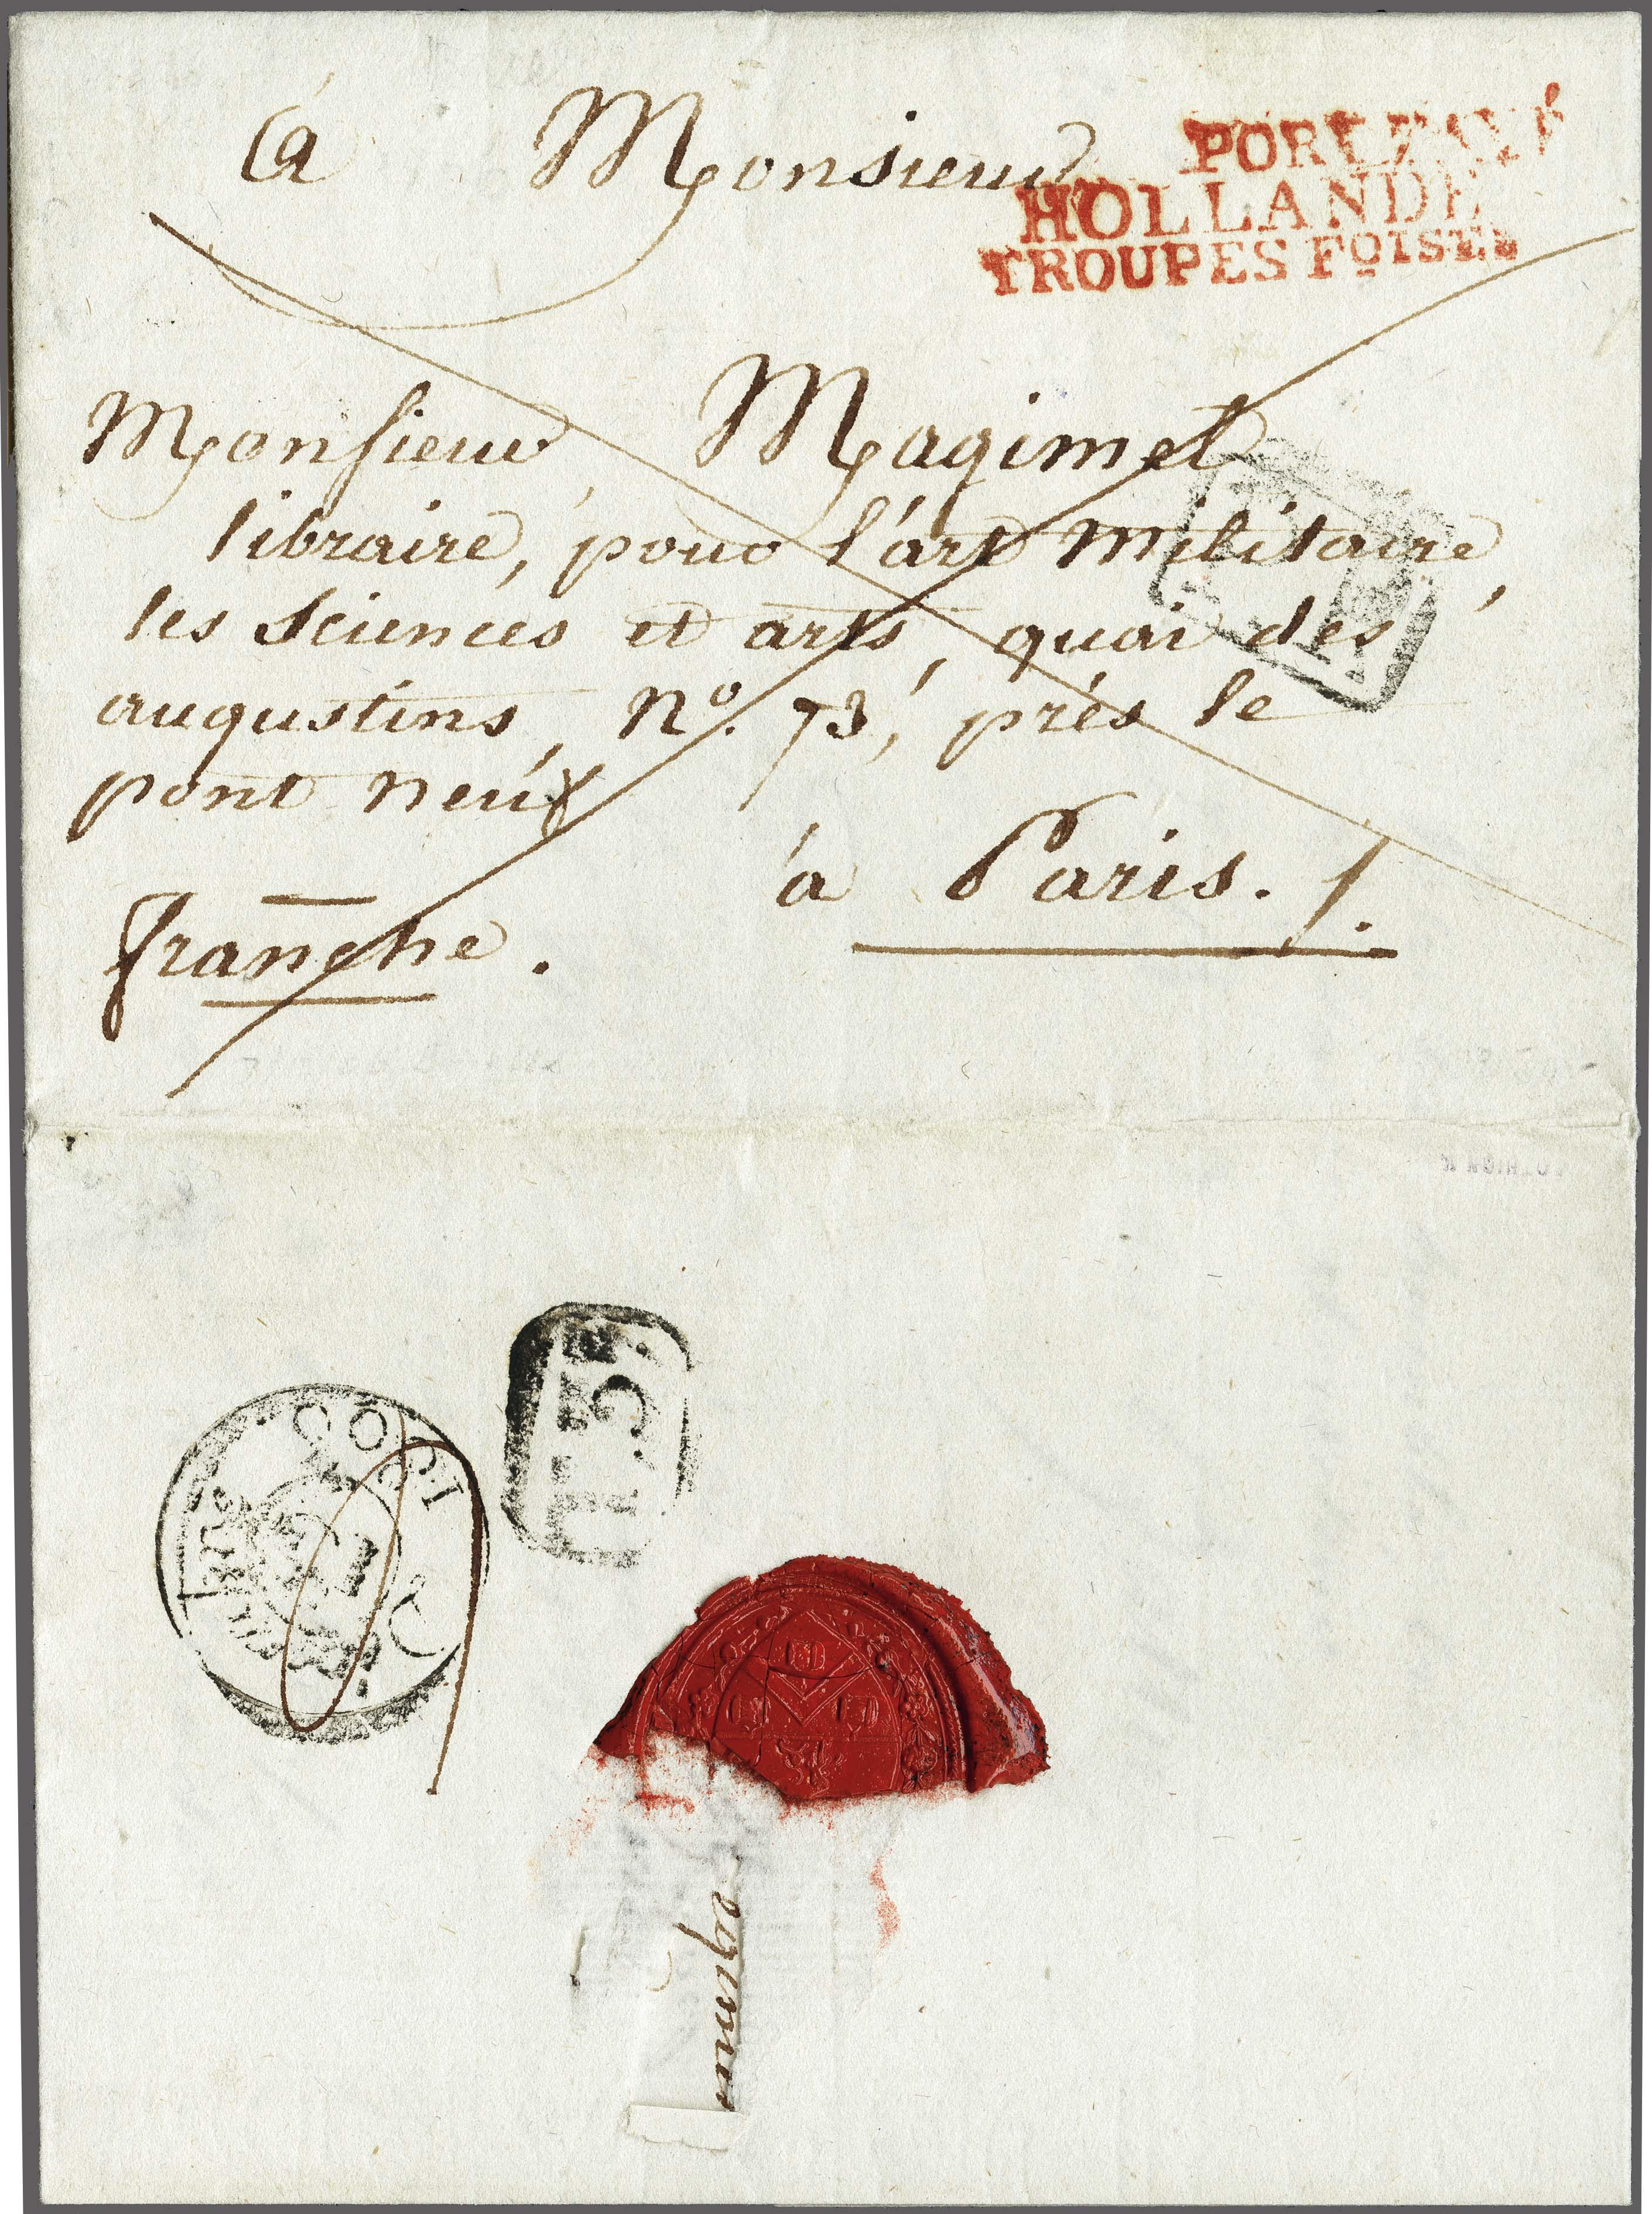 à Monsieur
PORT PAYÉ
HOLLANDE
TROUPES FOISES
Monsieur Magimel
libraire, pour l'art militaire,
les Sciences et arts, quai des
augustins, No. 73, près le
pont neuf
à Paris.
franche.